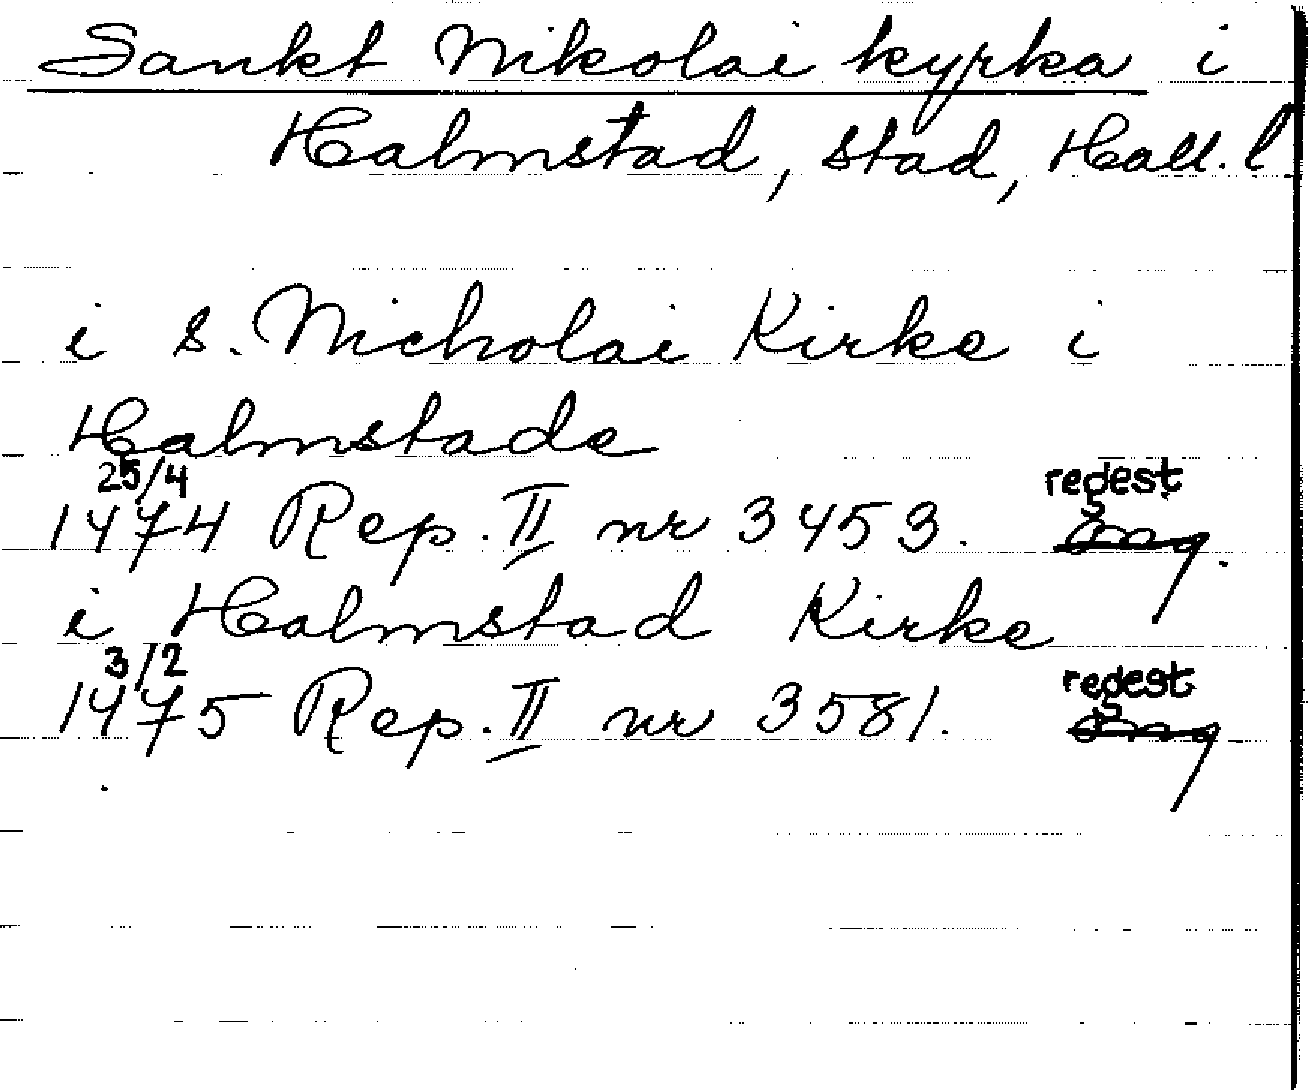 Sankt Nikolai kyrka i
Halmstad, stad, Hall. l
i S. Nicholai Kirke i
Halmstade
25/4
1474 Rep. II nr 3453. regest
i Halmstad Kirke
3/2
1475 Rep. II nr 3581. regest